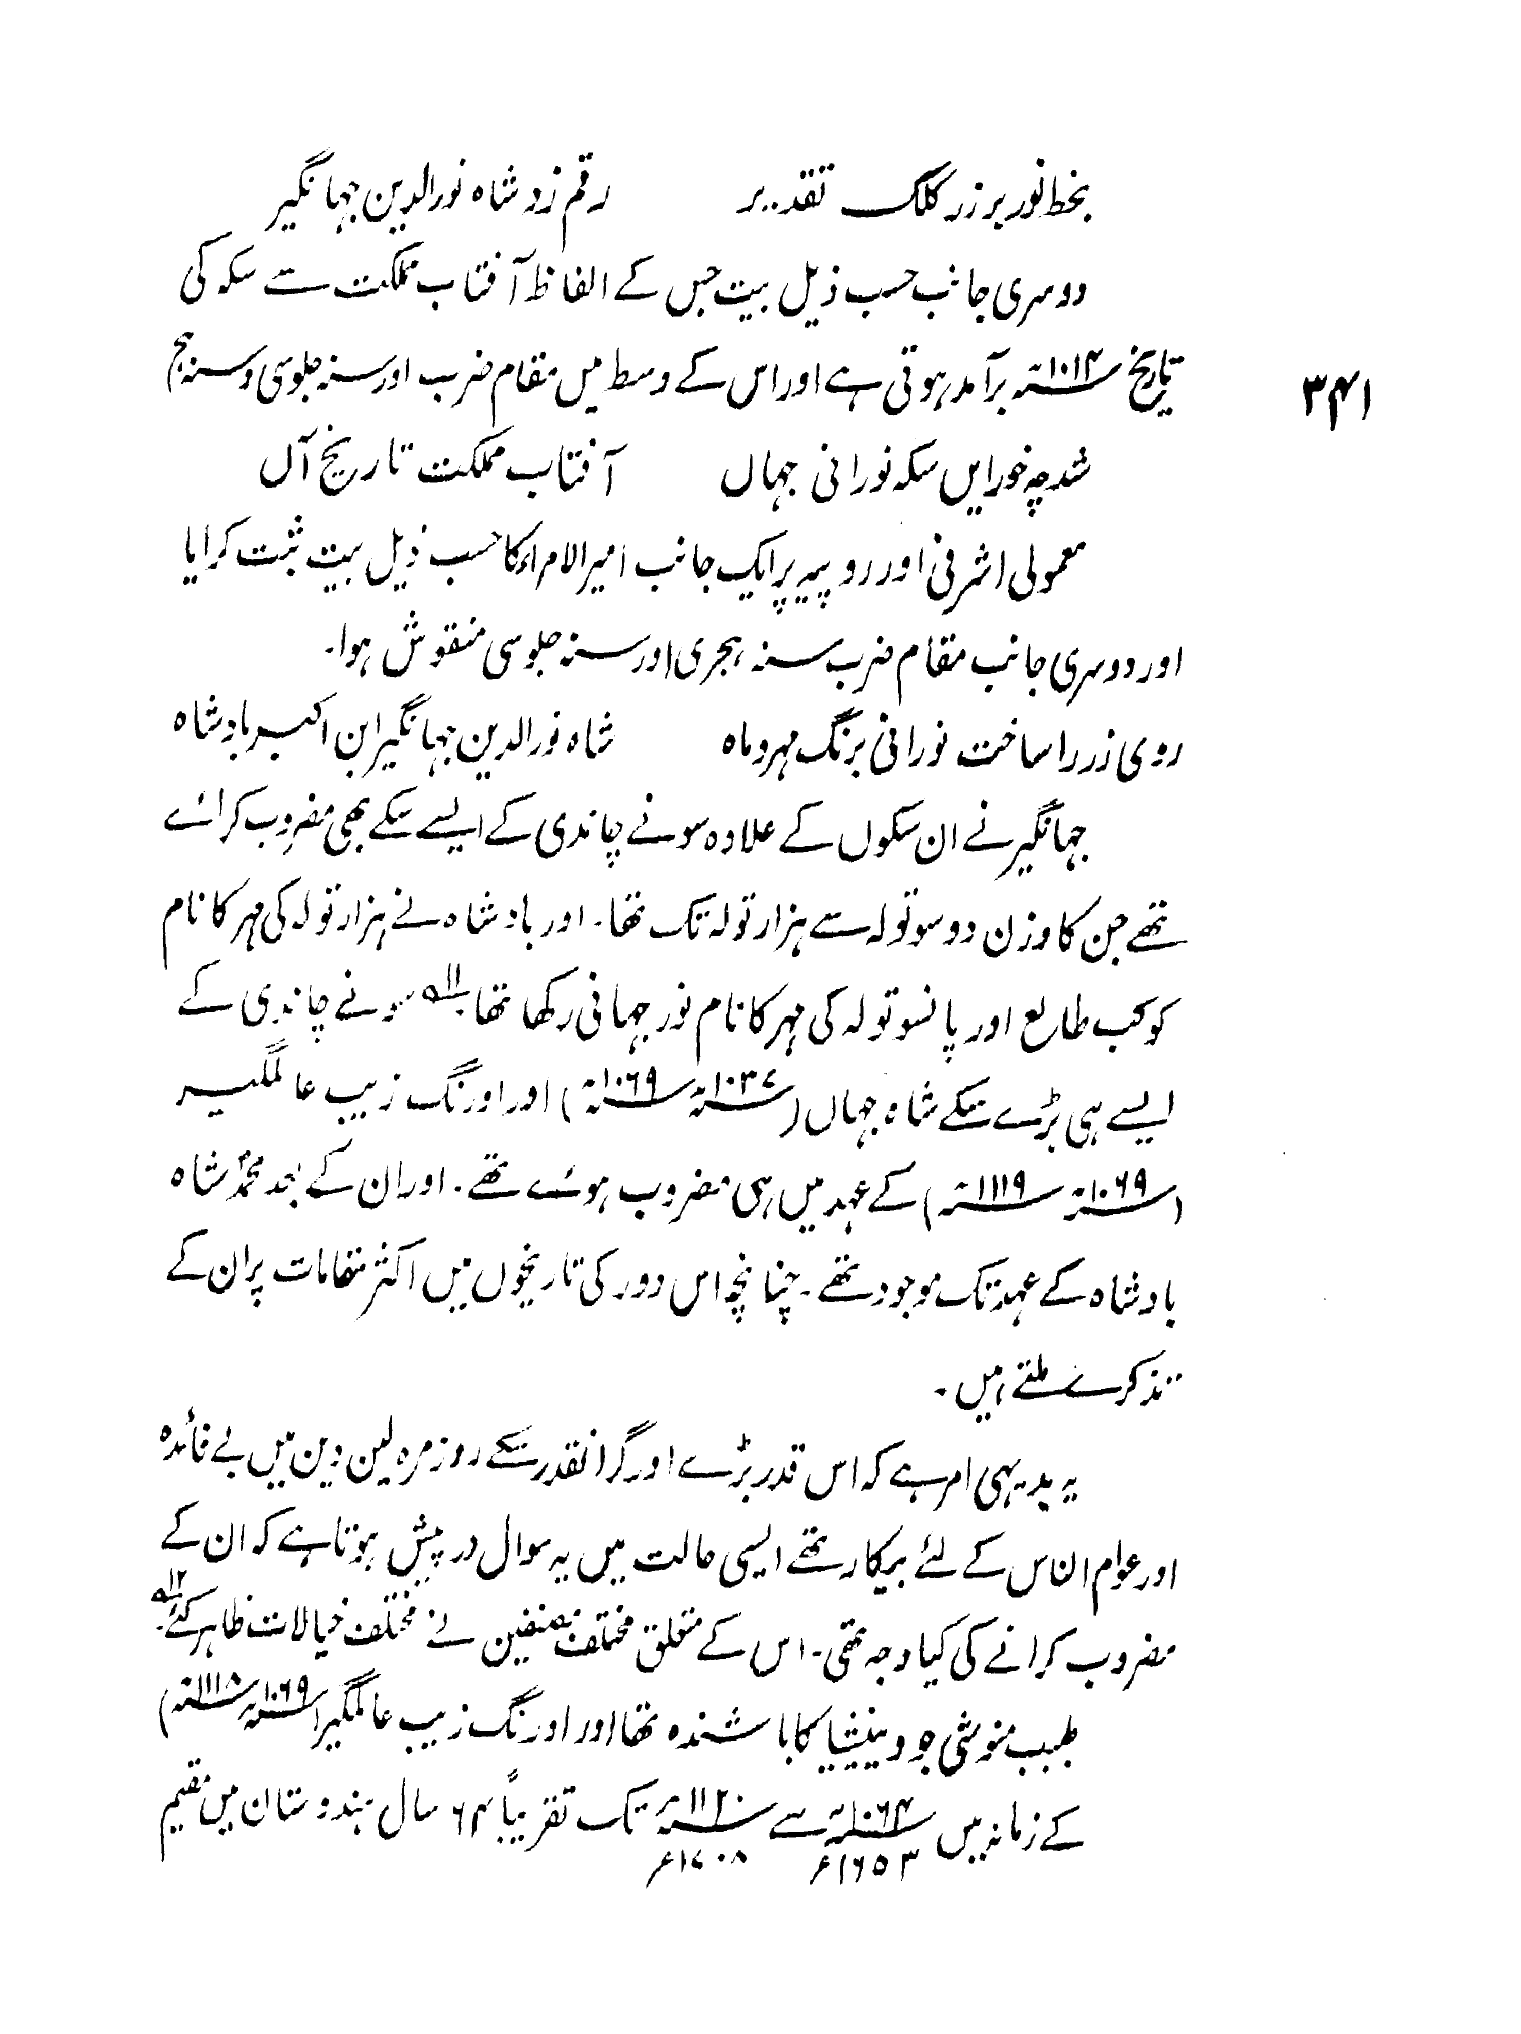 بخط نور بر زر کلک تقدیر رقم زد شاہ نورالدین جہانگیر
دوسری جانب حسب ذیل بیت جس کے الفاظ آفتاب مملکت سے سکہ کی
تاریخ ۱۰۱۴؁ھ برآمد ہوتی ہے اور اس کے وسط میں مقام ضرب اور سنہ جلوسی و سنہ ہجم
۳۴۱
شد چہ خور ایں سکہ نورانی جہاں آفتاب مملکت تاریخ آں
معمولی اشرفی اور روپیہ پر ایک جانب امیرالامراء کا حسب ذیل بیت ثبت کرایا
اور دوسری جانب مقام ضرب سنہ ہجری اور سنہ جلوسی منقوش ہوا۔
روی زر را ساخت نورانی برنگ مہر و ماہ شاہ نورالدین جہانگیر ابن اکبر بادشاہ
جہانگیر نے ان سکوں کے علاوہ سونے چاندی کے ایسے سکے بھی مضروب کرائے
تھے جن کا وزن دو سو تولہ سے ہزار تولہ تک تھا۔ اور بادشاہ نے ہزار تولہ کی مہر کا نام
کوکب طالع اور پانسو تولہ کی مہر کا نام نور جہانی رکھا تھا۔ ۱۱؎ سونے چاندی کے
ایسے ہی بڑے سکے شاہ جہاں (۱۰۳۷؁ھ ۱۰۶۹؁ھ) اور اورنگ زیب عالمگیر
(۱۰۶۹؁ھ ۱۱۱۹؁ھ) کے عہد میں ہی مضروب ہوئے تھے۔ اور ان کے بعد محمد شاہ
بادشاہ کے عہد تک موجود تھے۔ چنانچہ اس دور کی تاریخوں میں اکثر مقامات پر ان کے
تذکرے ملتے ہیں۔
یہ بدیہی امر ہے کہ اس قدر بڑے اور گرانقدر سکے روزمرہ لین دین میں بے فائدہ
اور عوام الناس کے لئے بیکار تھے ایسی حالت میں یہ سوال درپیش ہوتا ہے کہ ان کے
مضروب کرانے کی کیا وجہ تھی۔ اس کے متعلق مختلف مصنفین نے مختلف خیالات ظاہر کئے۔ ۱۲؎
طبیب منوشی جو وینیشیا کا باشندہ تھا اور اورنگ زیب عالمگیر (۱۰۶۹؁ھ ۱۱۱۸؁ھ)
کے زمانہ میں ۱۰۶۴؁ھ سے ۱۱۲۰؁ھ تک تقریباً ۶۴ سال ہندوستان میں مقیم
۱۶۵۳ء ۱۷۰۸ء